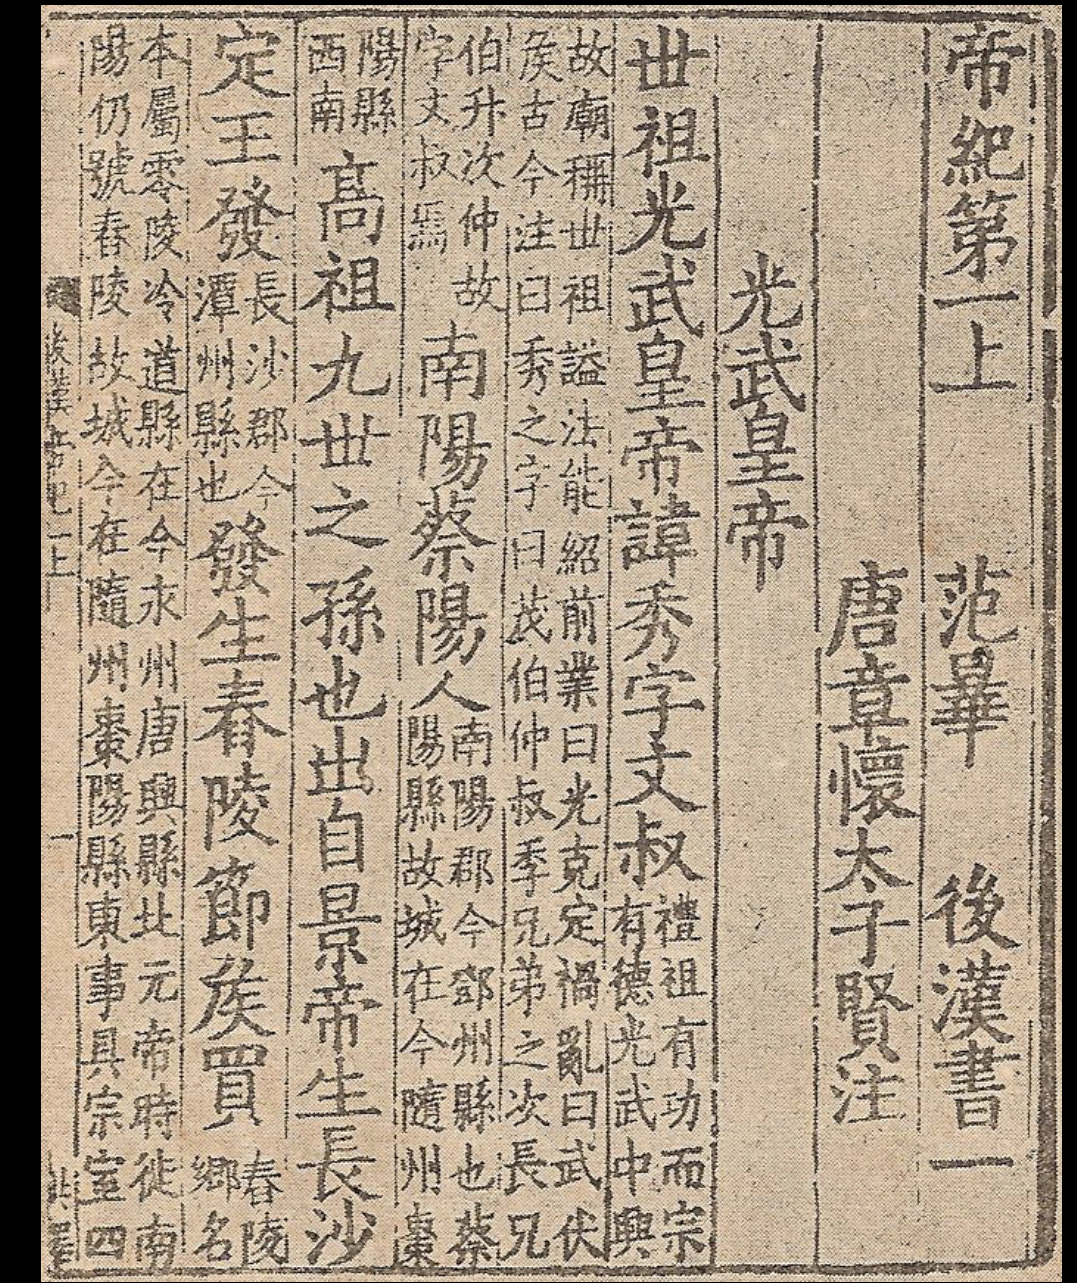 帝紀第一上 范曄 後漢書一
唐章懷太子賢注
光武皇帝
世祖光武皇帝諱秀字文叔禮祖有功而宗有德光武中興
故廟稱世祖謚法能紹前業曰光克定禍亂曰武伏
侯古今注曰秀之字曰茂伯仲叔季兄弟之次長兄
伯升次仲故字文叔焉南陽蔡陽人南陽郡今鄧州縣也蔡陽縣故城在今隨州棗
陽縣西南高祖九世之孫也出自景帝生長沙
定王發長沙郡今潭州縣也發生舂陵節侯買舂陵鄉名
本屬零陵冷道縣在今永州唐興縣北元帝時徙南
陽仍號舂陵故城今在隨州棗陽縣東事具宗室四
後漢帝紀一上 一